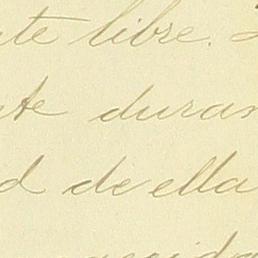 te libre.
te duran
d de ella